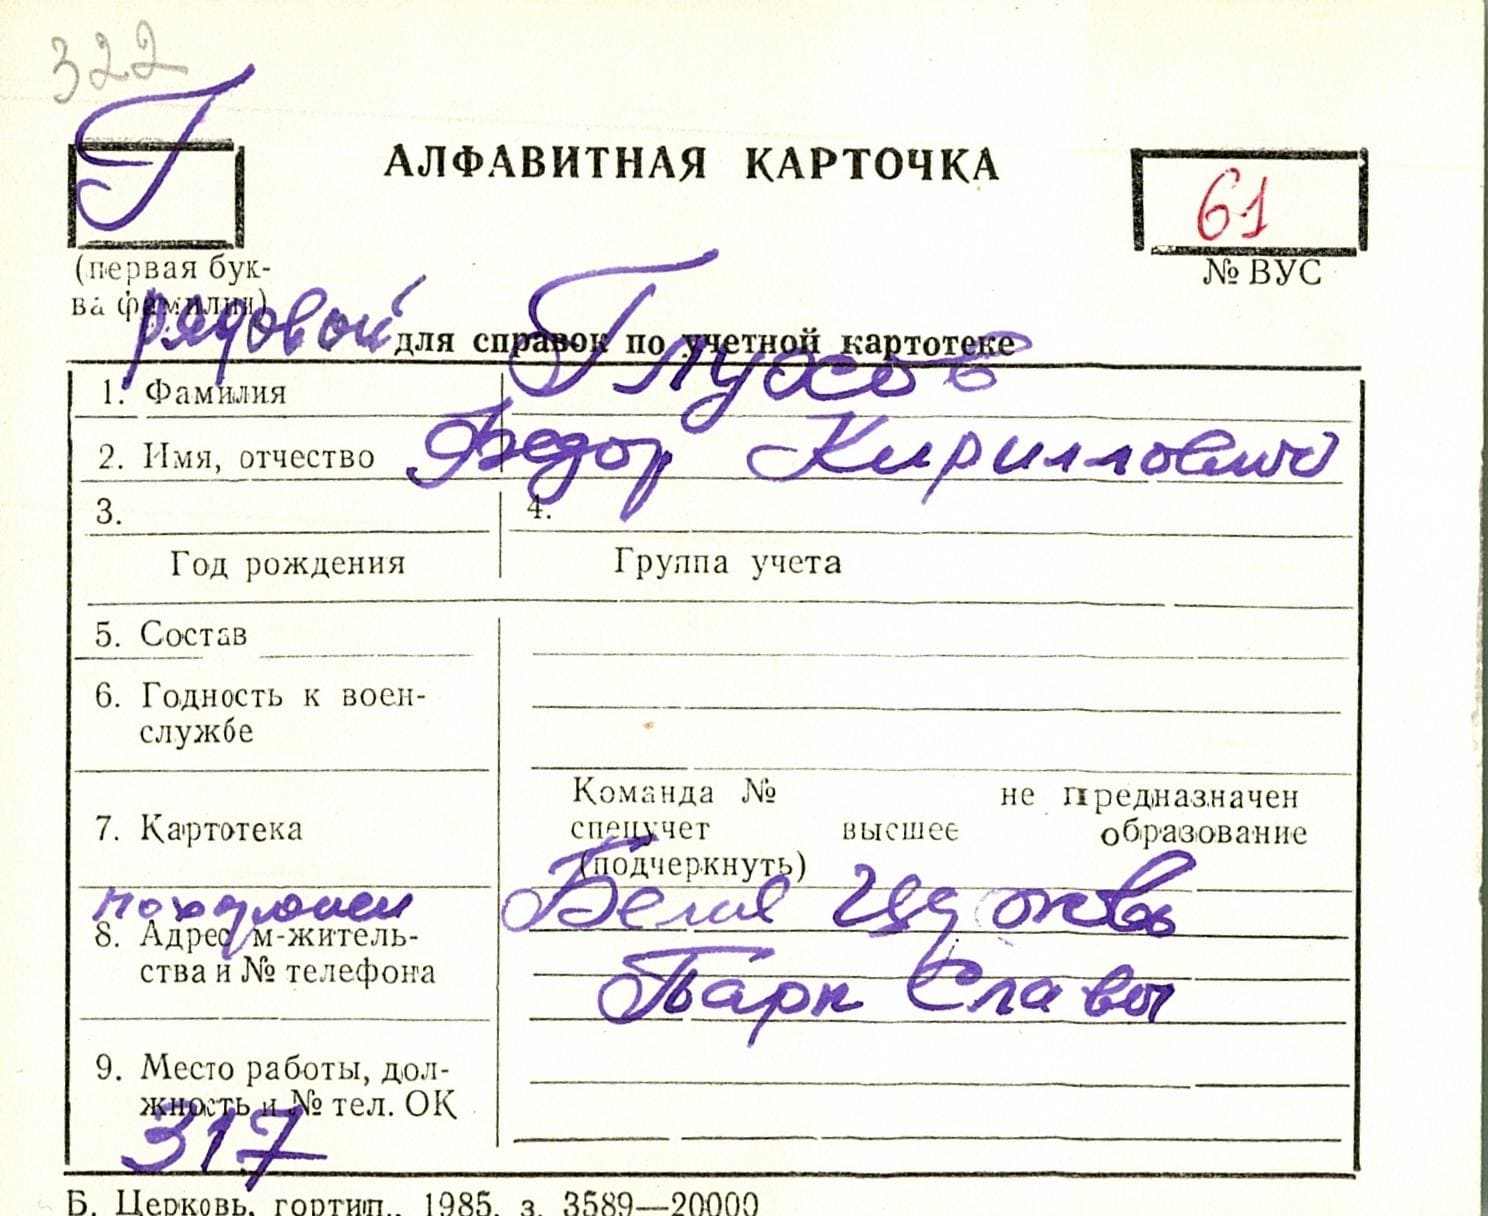 322
Г
АЛФАВИТНАЯ КАРТОЧКА
61
(первая бук-
ва фамилии)
№ ВУС
рядовой
для справок по учетной картотеке
1. Фамилия Глухов
2. Имя, отчество Федор Кириллович
3. 4.
Год рождения Группа учета
5. Состав
6. Годность к воен-
службе
7. Картотека
Команда № не предназначен
спецучет высшее образование
(подчеркнуть)
похоронен Белая Церковь
8. Адрес м-житель-
ства и № телефона
Парк Славы
9. Место работы, дол-
жность и № тел. ОК
317
Б. Церковь, гортип., 1985. з. 3589—20000